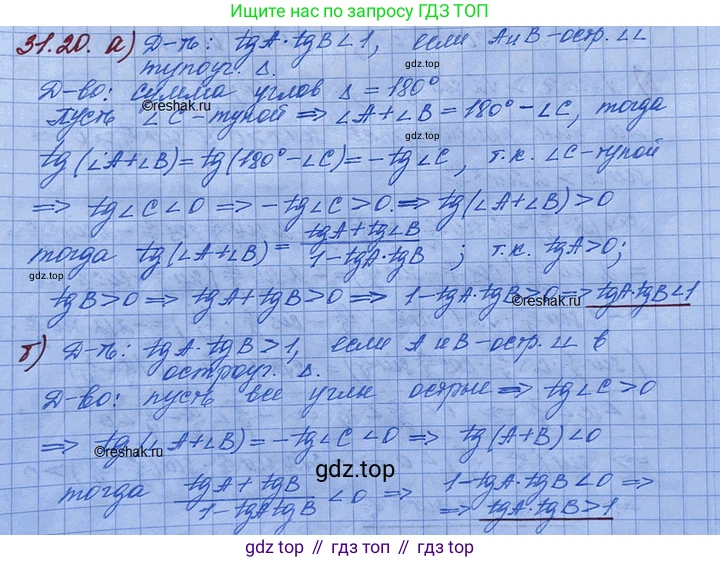 Ищите нас по запросу ГДЗ ТОП
31.20. а) Д-ть: tgA·tgB<1, если A и B-остр. ∠∠
тупоуг. Δ.
Д-во: сумма углов Δ = 180°
©reshak.ru
gdz.top
Пусть ∠C-тупой ⇒ ∠A+∠B = 180°-∠C, тогда
gdz.top
tg(∠A+∠B)=tg(180°-∠C)=-tg∠C, т.к. ∠C-тупой
⇒ tg∠C<0 ⇒ -tg∠C>0. ⇒ tg(∠A+∠B)>0
тогда tg(∠A+∠B) = tgA+tg∠B / 1-tgA·tgB ; т.к. tgA>0;
gdz.top
tgB>0 ⇒ tgA+tgB>0 ⇒ 1-tgA·tgB>0 ⇒ tgA·tgB<1
©reshak.ru
б) Д-ть: tgA·tgB>1, если A и B-остр. ∠∠ в
остроуг. Δ.
Д-во: пусть все углы острые ⇒ tg∠C>0
⇒ tg(∠A+∠B)=-tg∠C<0 ⇒ tg(A+B)<0
©reshak.ru
gdz.top
тогда tgA+tgB / 1-tgAtgB <0 ⇒ 1-tgA·tgB<0 ⇒
⇒ tgA·tgB>1
gdz.top
gdz.top // гдз.топ // gdz.top